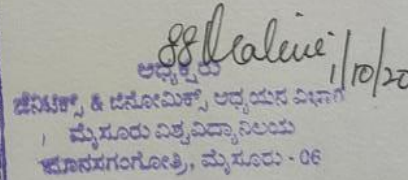 1/10/20
ಅಧ್ಯಕ್ಷರು
ಜೆನಿಟಿಕ್ಸ್ & ಜಿನೋಮಿಕ್ಸ್ ಅಧ್ಯಯನ ವಿಭಾಗ
ಮೈಸೂರು ವಿಶ್ವವಿದ್ಯಾನಿಲಯ
ಮಾನಸಗಂಗೋತ್ರಿ, ಮೈಸೂರು - 06